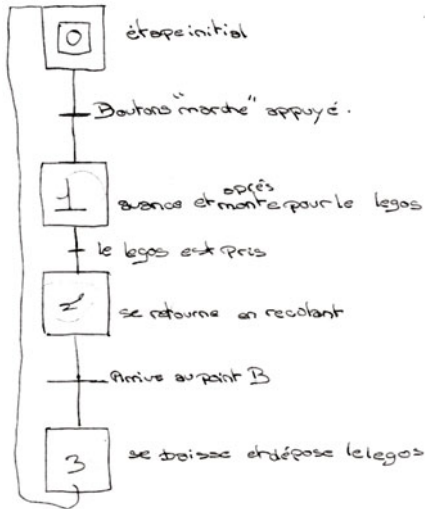 0
étape initial
Boutons "marche" appuyé.
1
après
avance et monte pour le legos
le legos est pris
2
se retourne en reculant
Arrive au point B
3
se baisse et dépose le legos